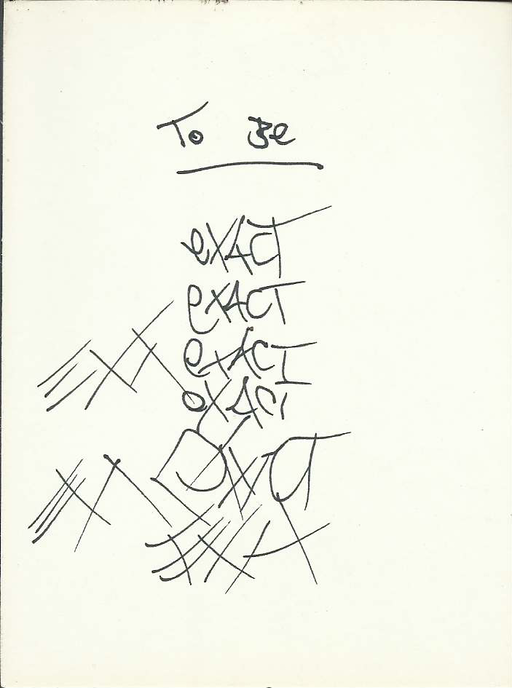 To Be
exACT
exACT
exACT
exACT